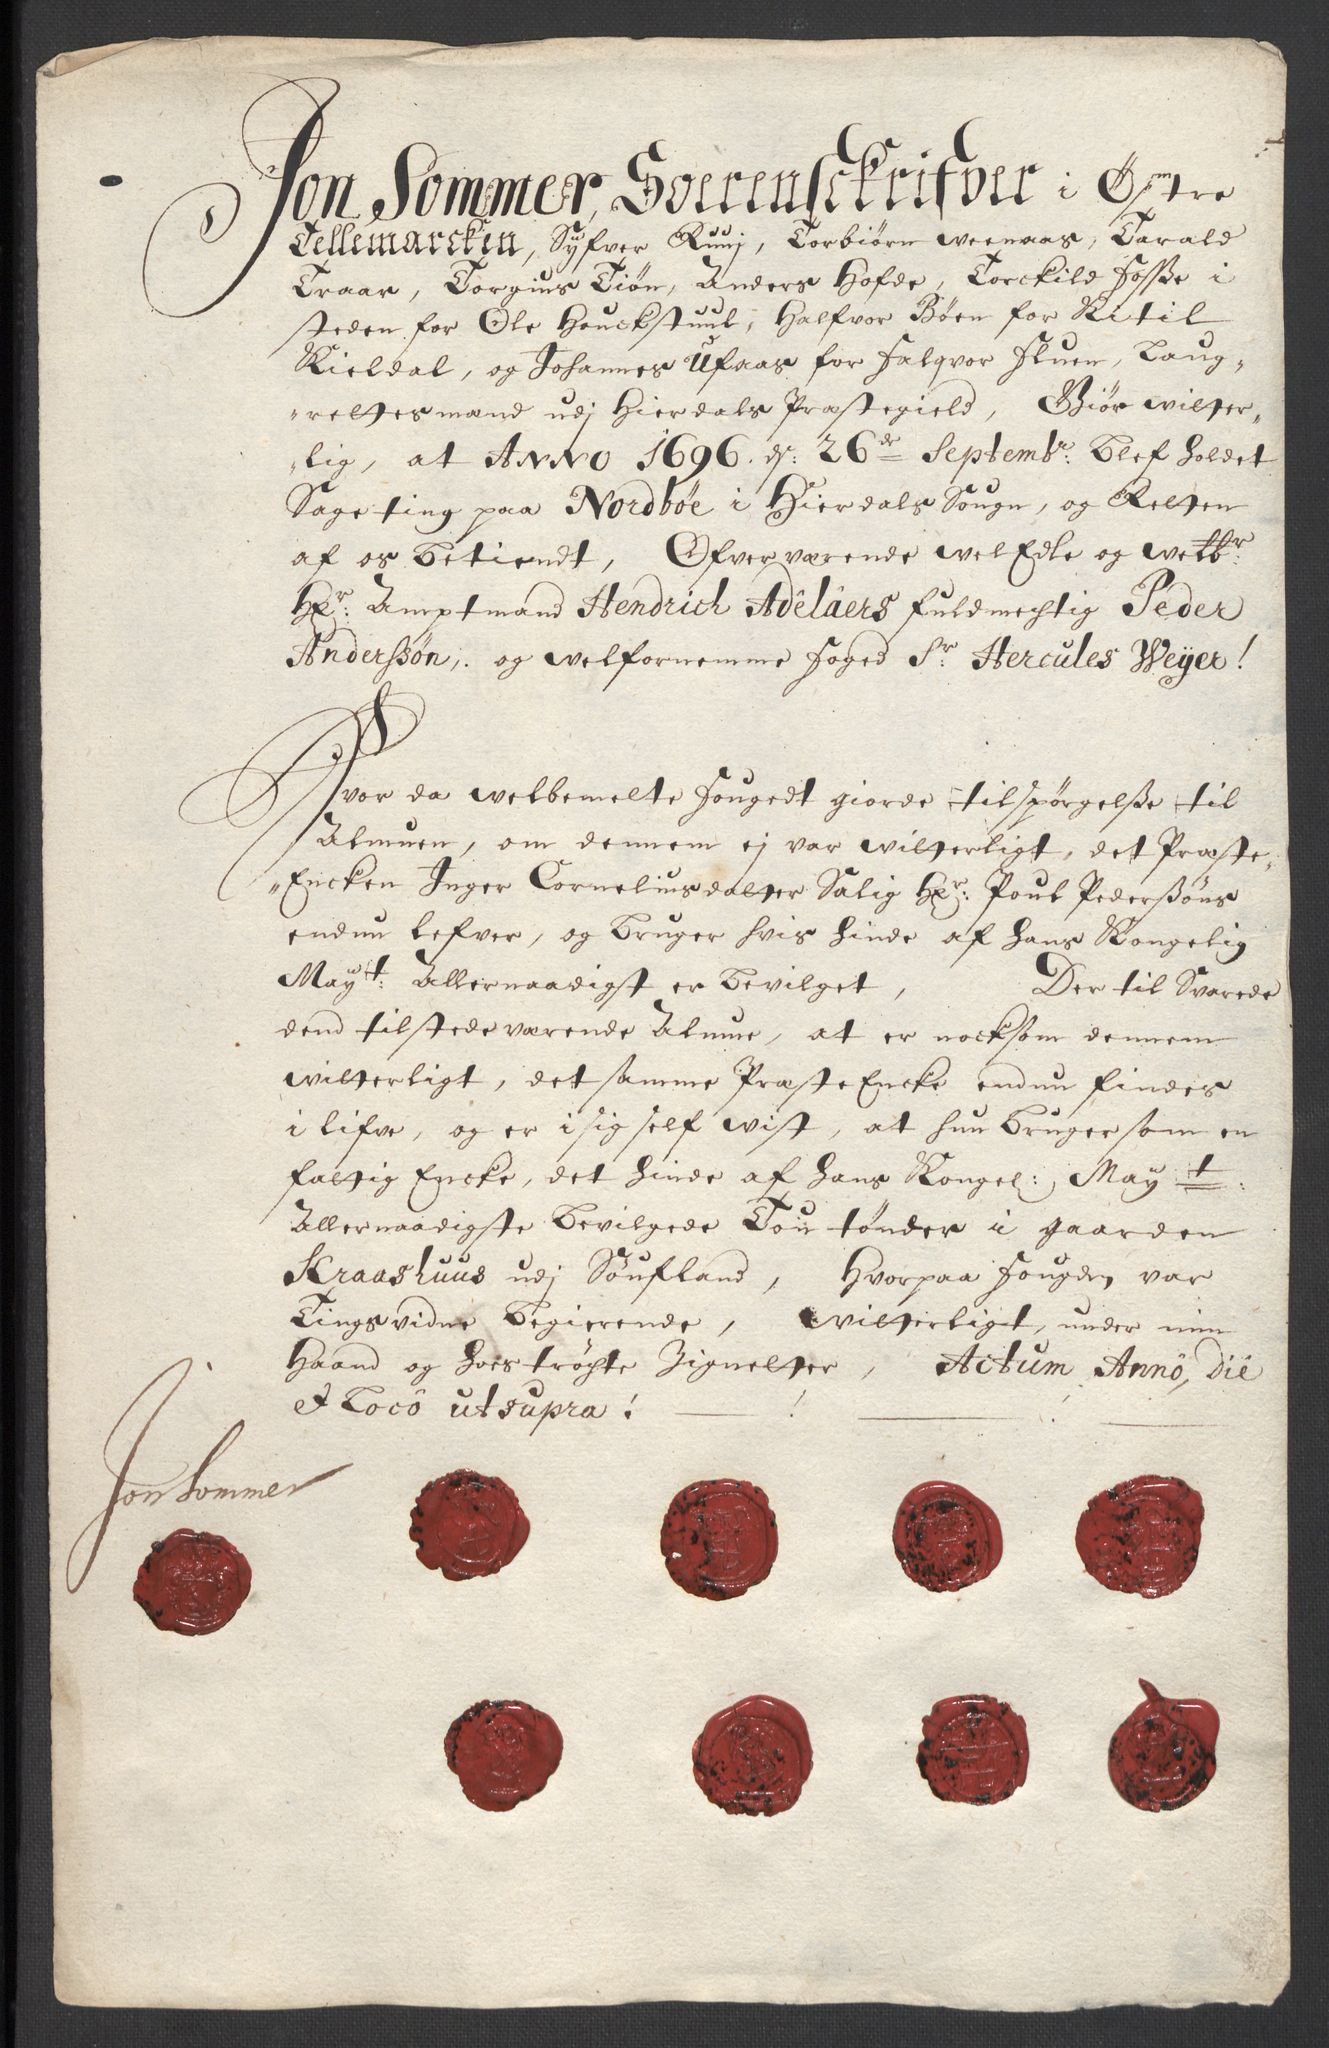 Jon Sommer, Soerenschrifver i Østre
Tellemarcken, Syfver Ruuj, Torbiørn weenaas, Tarald
Traar, Torgius Tiøn, Anders Hofde, Torckild Fosße i
steden for Ole Houckstuul, Halfvor Böen for Kitil
Kieldal, og Johannes Ufaas for Falqvor Fluen, Laug-
rettesmænd udj Hierdals Præstegield, Giør witter-
lig, at ANNO 1696. d: 26de Septembr: blef holdet
Sageting paa Nordbøe i Hierdals Sougn, og Retten
af os betiendt, Ofverværende welEdle og welbr:
Hr: Amptmand Hendrich Adelaers fuldmechtig Peder
Anderßön, og welfornemme foged Sr: Hercules Weyer!
Hvor da welbemelte fougedt giorde tilspörgelße til
Almuen, om dennem ej var witterligt, det Præste-
Encken Inger Corneliusdatter Salig Hr: Poul Pederßöns
endnu lefver, og bruger hvis hinde af hans Kongelig
Mayt: Allernaadigst er bevilget, Der til Svarede
dend tilstedeværende Almue, at er nocksom dennem
witterligt, det samme PræsteEncke endnu findes
i lifve, og er i sig self wist, at hun bruger som en
fattig Encke, det hinde af hans Kongel: Mayt:
Allernaadigste bevilgede Tou tönder i gaarden
Kraashuus udj Söufland, Hvorpaa fougden var
Tingsvidne begierende, witterligt, under min
Haand og hoes tröchte Zignetter, Actum Annô, Die
et Locô ut supra!
Jon Sommer